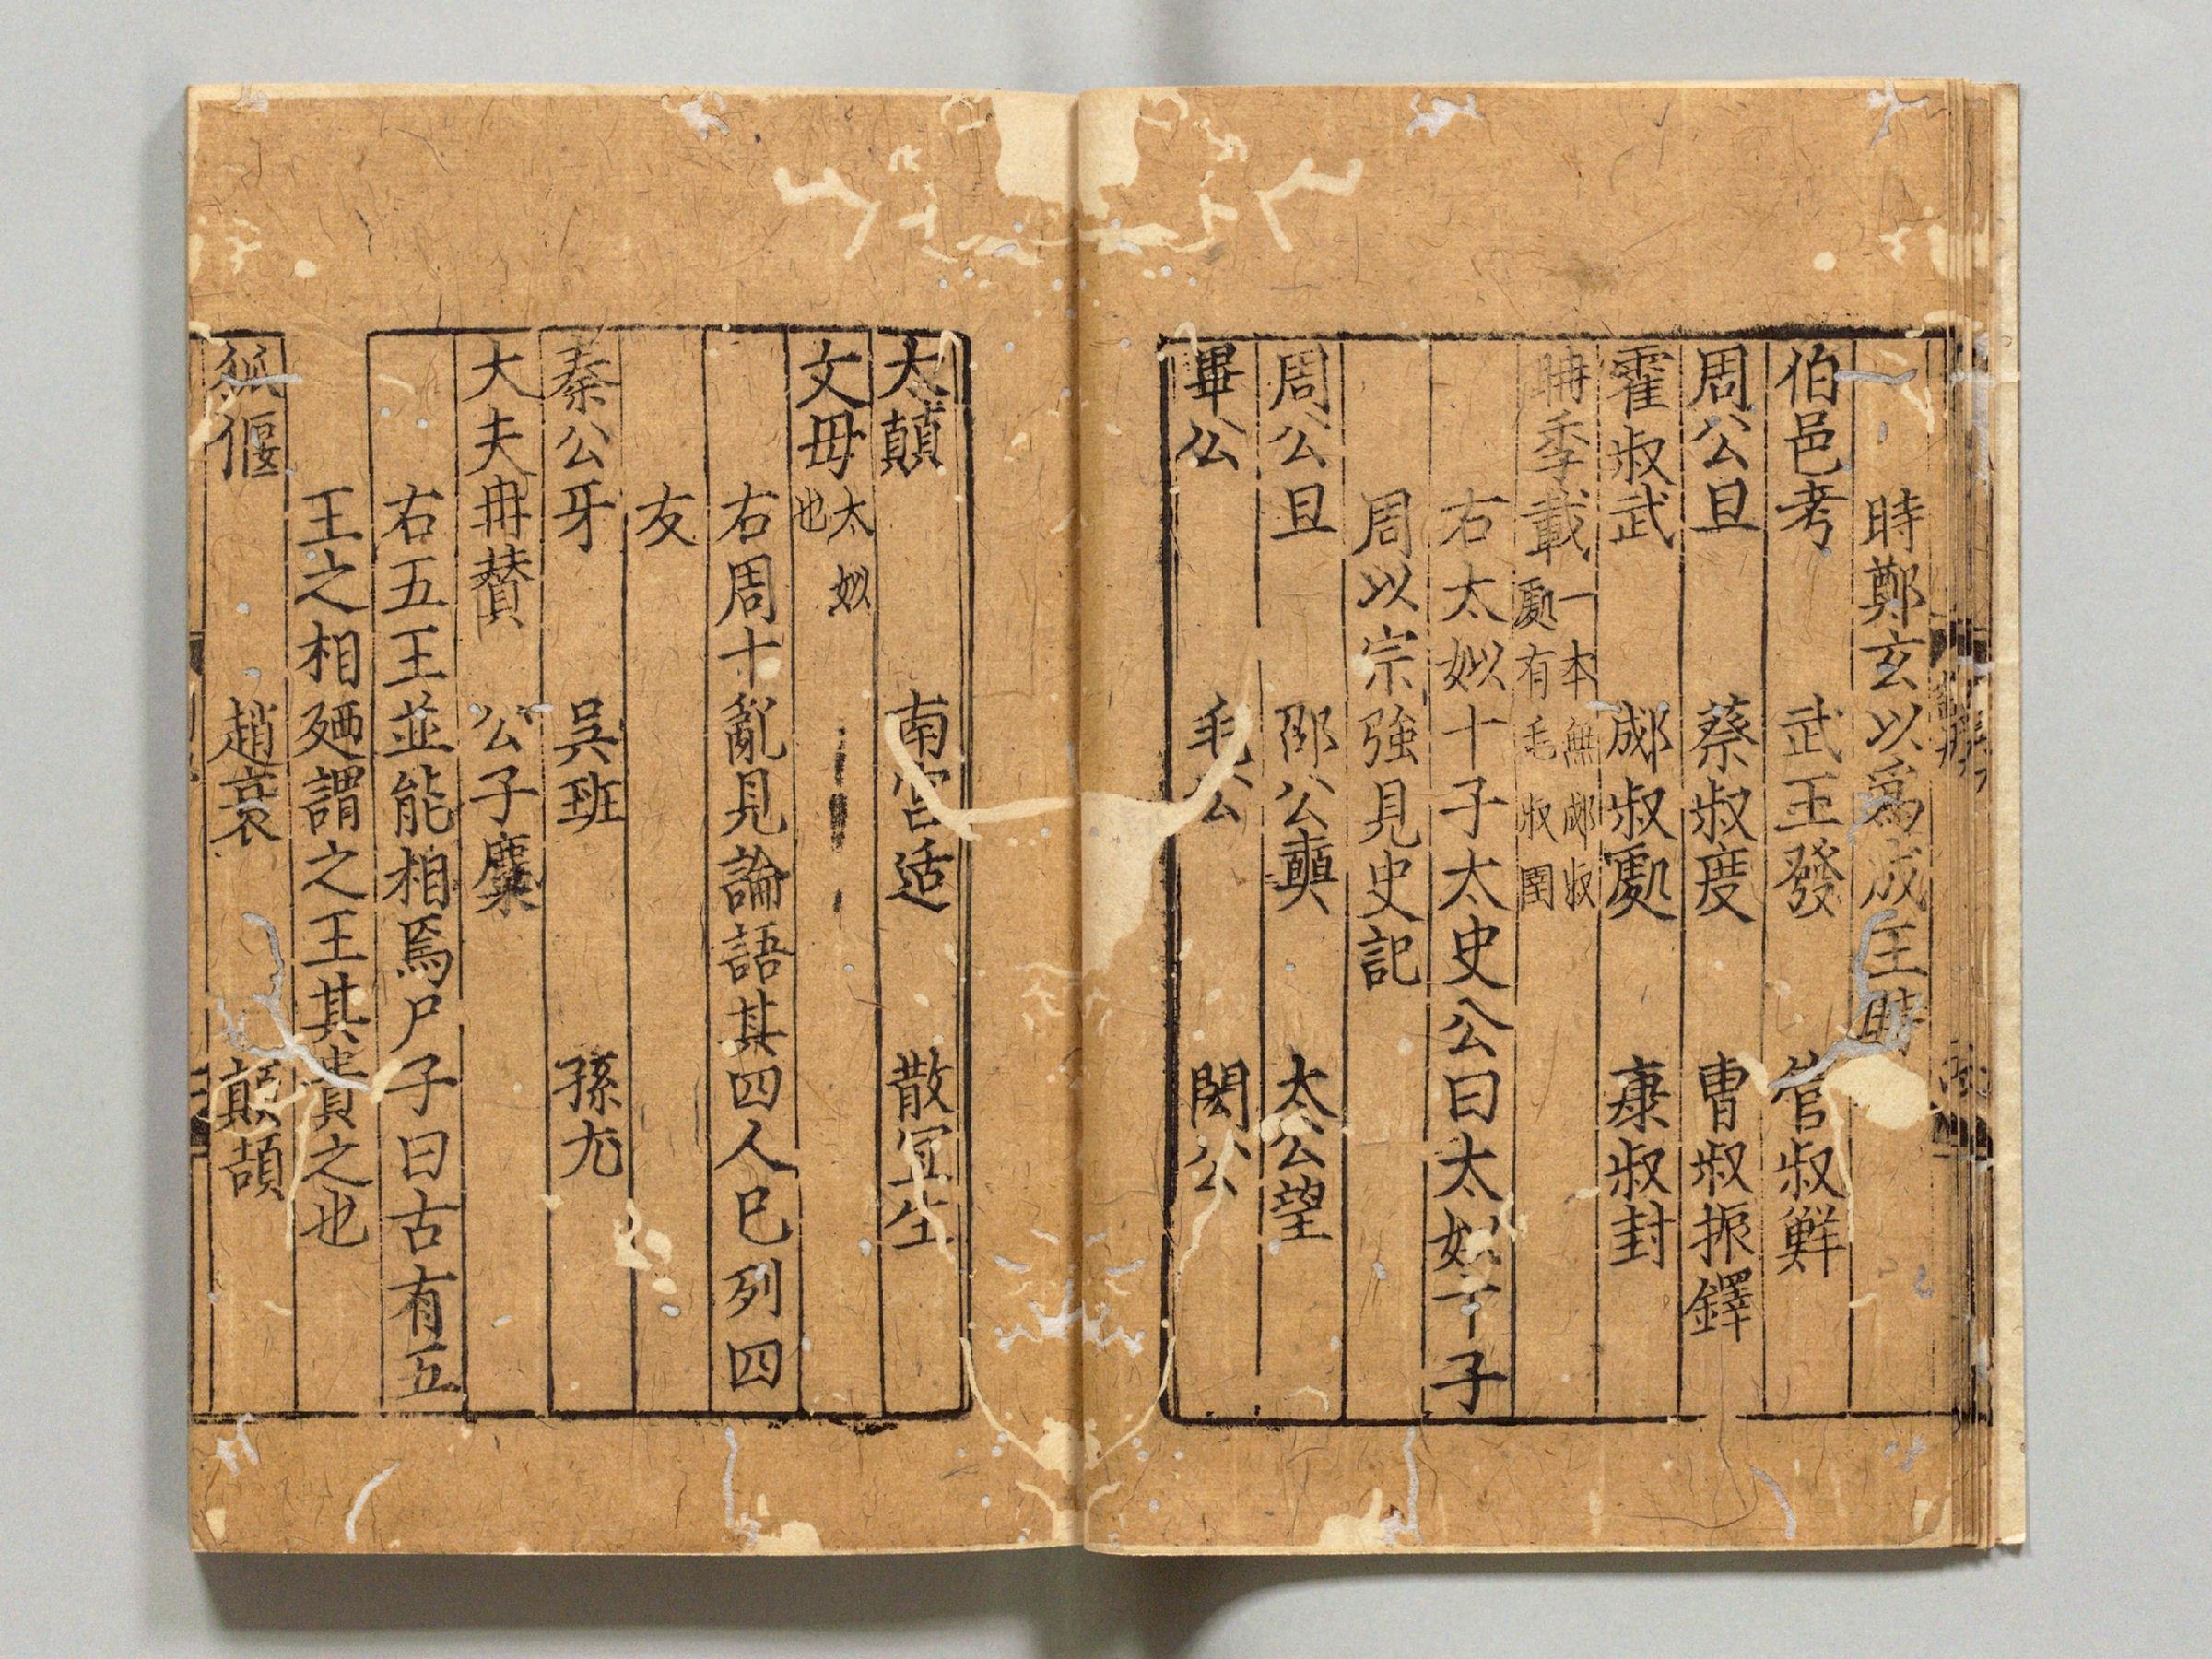 時鄭玄以爲成王時
伯邑考 武王發 管叔鮮
周公旦 蔡叔度 曹叔振鐸
霍叔武 郕叔處 康叔封
冉季載 一本無郕叔
處有毛叔圉
右太姒十子太史公曰太姒十子
周以宗強見史記
周公旦 邵公奭 太公望
畢公 毛公 閎公
太顛 南宮适 散宜生
文母 太姒
也
右周十亂見論語其四人已列四
友
秦公牙 吳班 孫尤
大夫冉贊 公子麋
右五王並能相焉尸子曰古有五
王之相廼謂之王其貴之也
狐偃 趙衰 顛頡